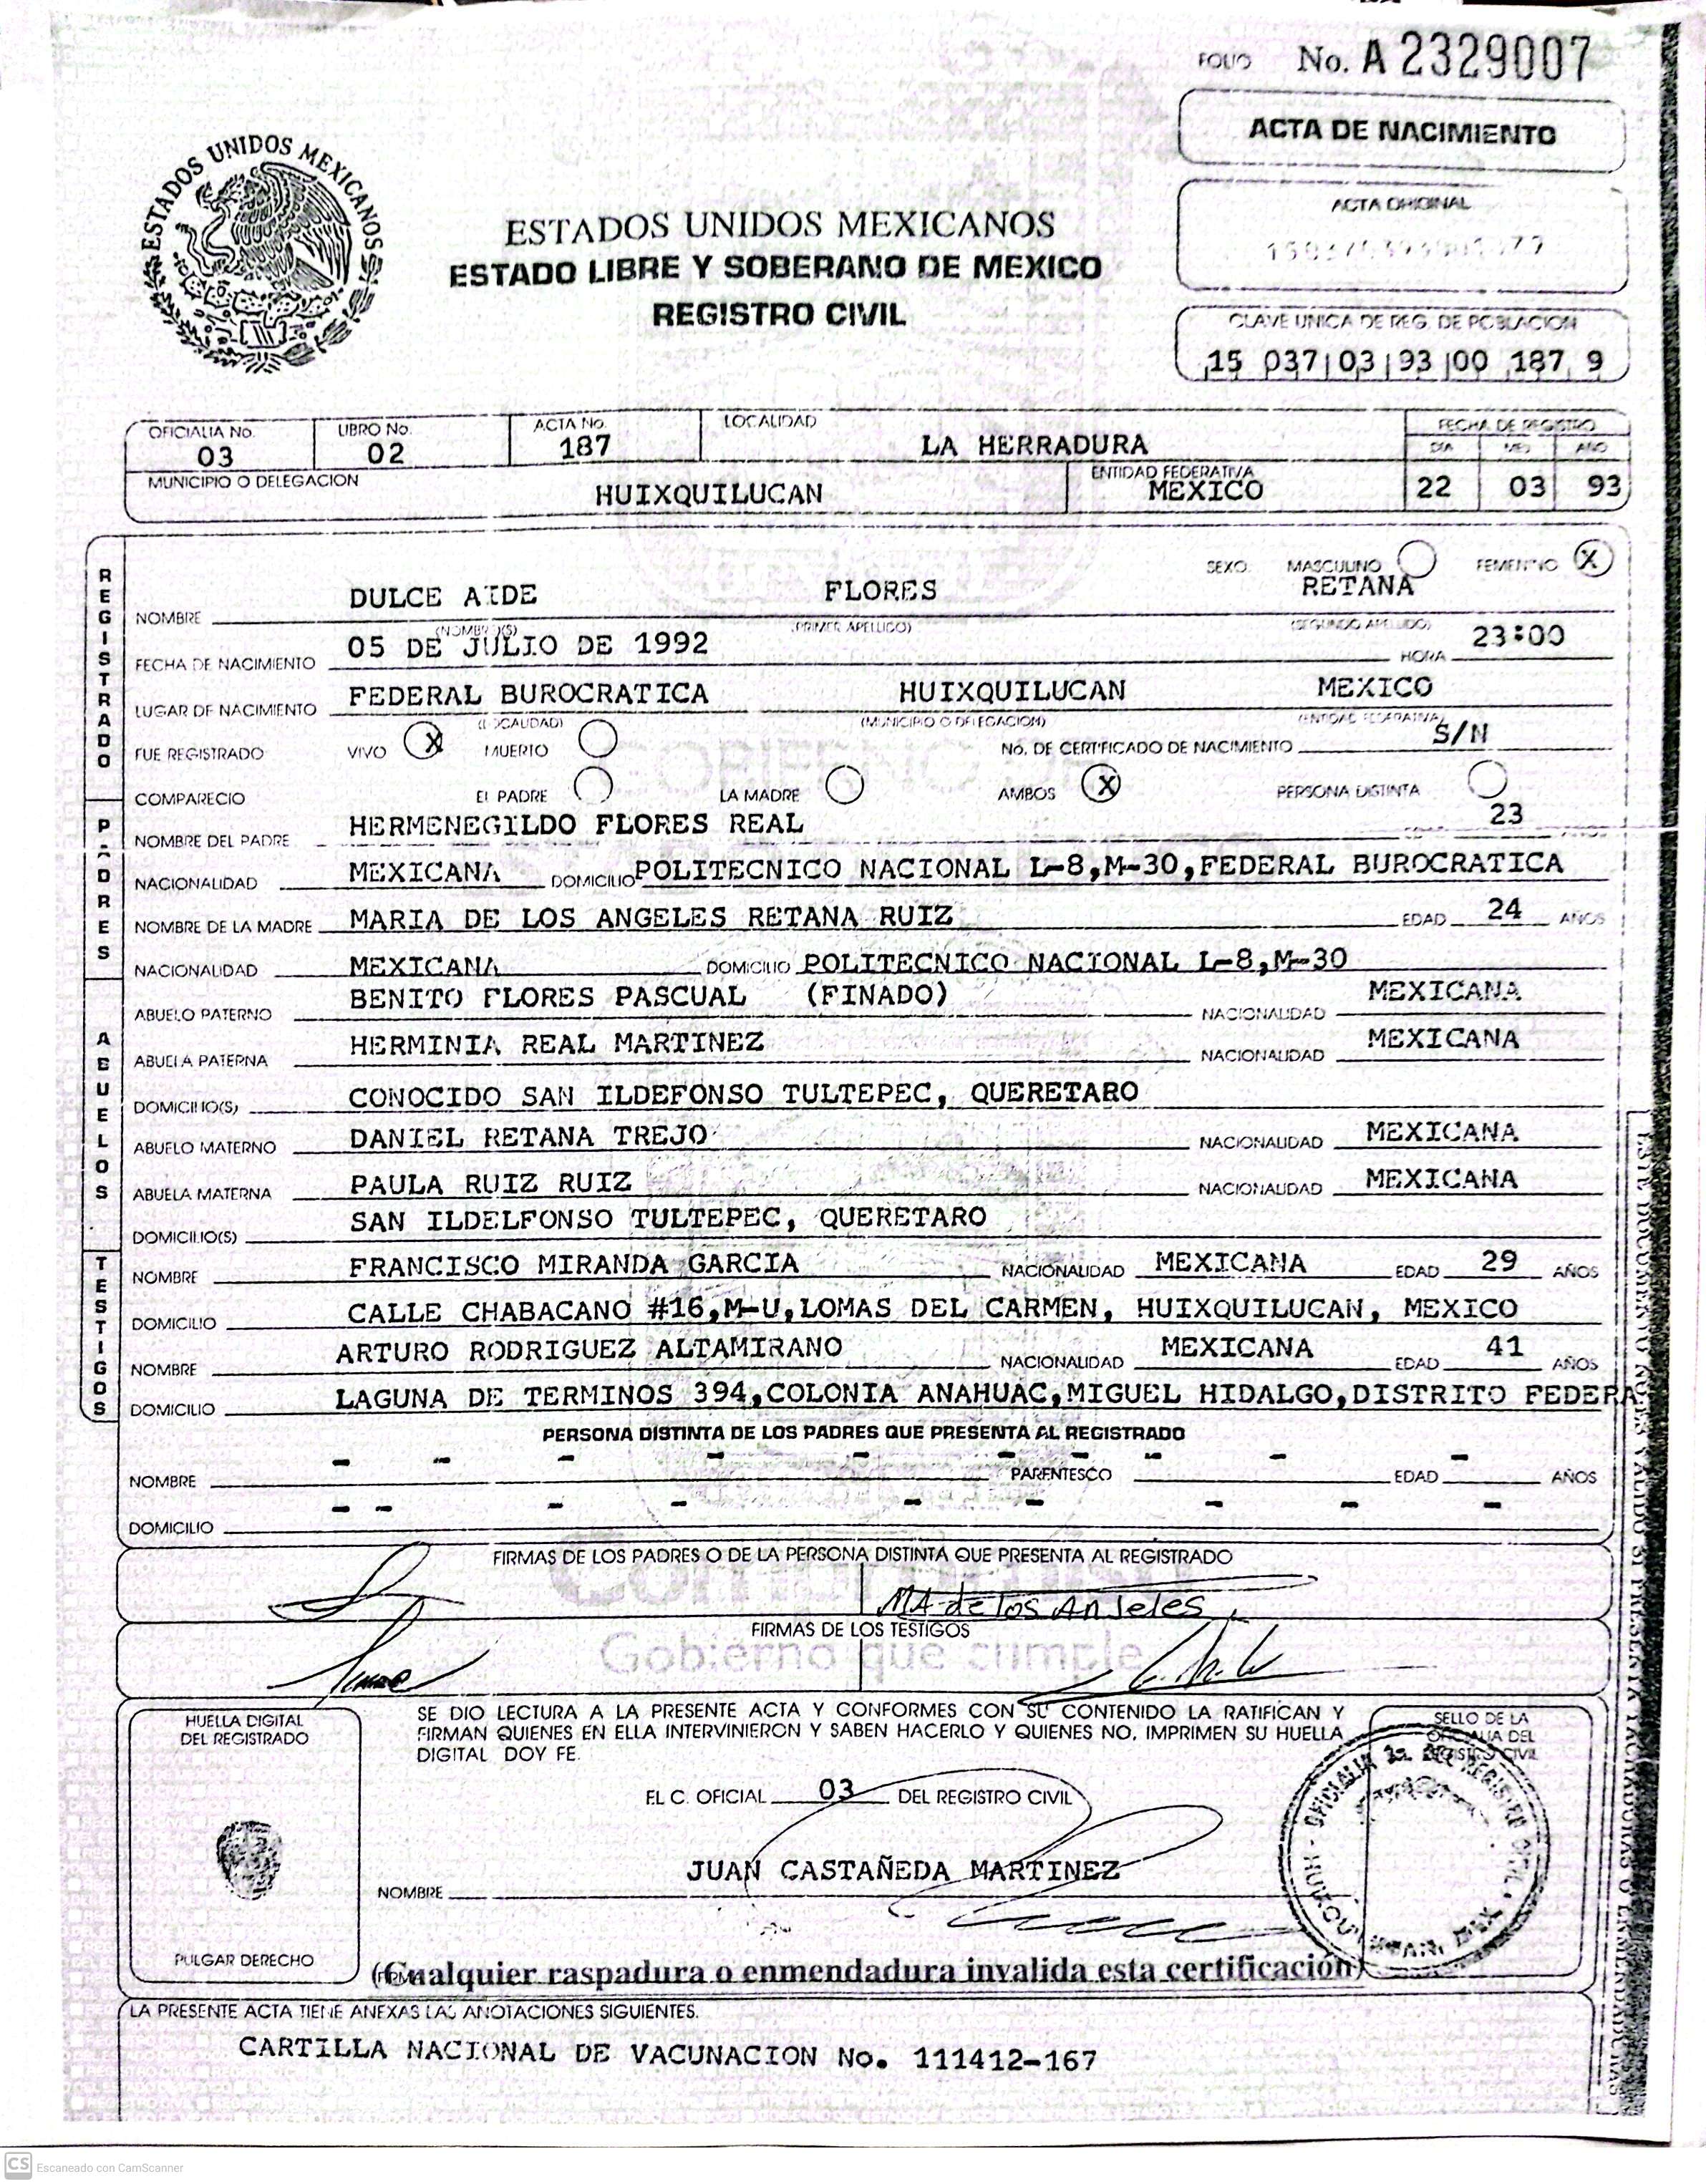 FOLIO No. A 2329007
ACTA DE NACIMIENTO
ESTADOS UNIDOS MEXICANOS
ACTA ORIGINAL
ESTADOS UNIDOS MEXICANOS
ESTADO LIBRE Y SOBERANO DE MEXICO
REGISTRO CIVIL
CLAVE UNICA DE REG. DE POBLACION
15 037 03 93 00 187 9
OFICIALIA No. LIBRO No. ACTA No. LOCALIDAD FECHA DE REGISTRO
03 02 187 LA HERRADURA DIA MES AÑO
MUNICIPIO O DELEGACION HUIXQUILUCAN ENTIDAD FEDERATIVA MEXICO 22 03 93
REGISTRADO
SEXO MASCULINO FEMENINO X
NOMBRE DULCE AIDE FLORES RETANA
(NOMBRE(S) (PRIMER APELLIDO) (SEGUNDO APELLIDO)
FECHA DE NACIMIENTO 05 DE JULIO DE 1992 HORA 23:00
LUGAR DE NACIMIENTO FEDERAL BUROCRATICA HUIXQUILUCAN MEXICO
(LOCALIDAD) (MUNICIPIO O DELEGACION) (ENTIDAD FEDERATIVA)
FUE REGISTRADO VIVO X MUERTO No. DE CERTIFICADO DE NACIMIENTO S/N
COMPARECIO EL PADRE LA MADRE AMBOS X PERSONA DISTINTA
PADRES
NOMBRE DEL PADRE HERMENEGILDO FLORES REAL 23 AÑOS
NACIONALIDAD MEXICANA DOMICILIO POLITECNICO NACIONAL L-8,M-30,FEDERAL BUROCRATICA
NOMBRE DE LA MADRE MARIA DE LOS ANGELES RETANA RUIZ EDAD 24 AÑOS
NACIONALIDAD MEXICANA DOMICILIO POLITECNICO NACIONAL L-8,M-30
ABUELOS
ABUELO PATERNO BENITO FLORES PASCUAL (FINADO) NACIONALIDAD MEXICANA
ABUELA PATERNA HERMINIA REAL MARTINEZ NACIONALIDAD MEXICANA
DOMICILIO(S) CONOCIDO SAN ILDEFONSO TULTEPEC, QUERETARO
ABUELO MATERNO DANIEL RETANA TREJO NACIONALIDAD MEXICANA
ABUELA MATERNA PAULA RUIZ RUIZ NACIONALIDAD MEXICANA
DOMICILIO(S) SAN ILDELFONSO TULTEPEC, QUERETARO
TESTIGOS
NOMBRE FRANCISCO MIRANDA GARCIA NACIONALIDAD MEXICANA EDAD 29 AÑOS
DOMICILIO CALLE CHABACANO #16,M-U,LOMAS DEL CARMEN, HUIXQUILUCAN, MEXICO
NOMBRE ARTURO RODRIGUEZ ALTAMIRANO NACIONALIDAD MEXICANA EDAD 41 AÑOS
DOMICILIO LAGUNA DE TERMINOS 394,COLONIA ANAHUAC,MIGUEL HIDALGO,DISTRITO FEDERA
PERSONA DISTINTA DE LOS PADRES QUE PRESENTA AL REGISTRADO
NOMBRE - - - - - - - - - PARENTESCO EDAD AÑOS
DOMICILIO - - - - - - - - -
FIRMAS DE LOS PADRES O DE LA PERSONA DISTINTA QUE PRESENTA AL REGISTRADO
Compromiso
MA de los AnJeles
FIRMAS DE LOS TESTIGOS
Gobierno que cumple
HUELLA DIGITAL
DEL REGISTRADO
SE DIO LECTURA A LA PRESENTE ACTA Y CONFORMES CON SU CONTENIDO LA RATIFICAN Y
FIRMAN QUIENES EN ELLA INTERVINIERON Y SABEN HACERLO Y QUIENES NO, IMPRIMEN SU HUELLA
DIGITAL DOY FE.
SELLO DE LA
OFICIALIA DEL
REGISTRO CIVIL
EL C. OFICIAL 03 DEL REGISTRO CIVIL
NOMBRE JUAN CASTAÑEDA MARTINEZ
PULGAR DERECHO
(Cualquier raspadura o enmendadura invalida esta certificación)
LA PRESENTE ACTA TIENE ANEXAS LAS ANOTACIONES SIGUIENTES.
CARTILLA NACIONAL DE VACUNACION No. 111412-167
ESTE DOCUMENTO NO ES VALIDO SI PRESENTA TACHADURAS O ENMENDADURAS
CS Escaneado con CamScanner